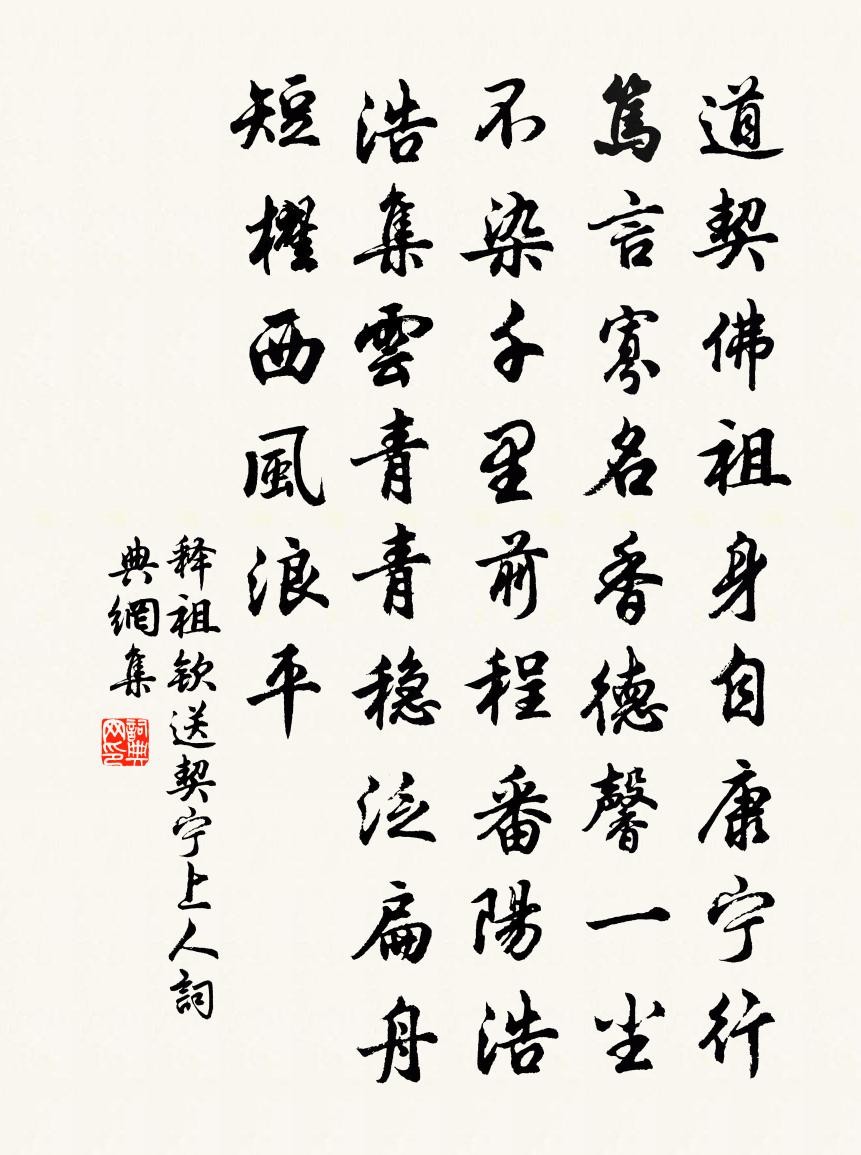 道契佛祖身自康宁行
篤言寡名香德馨一尘
不染千里前程番陽浩
浩集雲青青穏泛扁舟
短櫂西風浪平
释祖钦送契宁上人詞
典網集
詞典网印